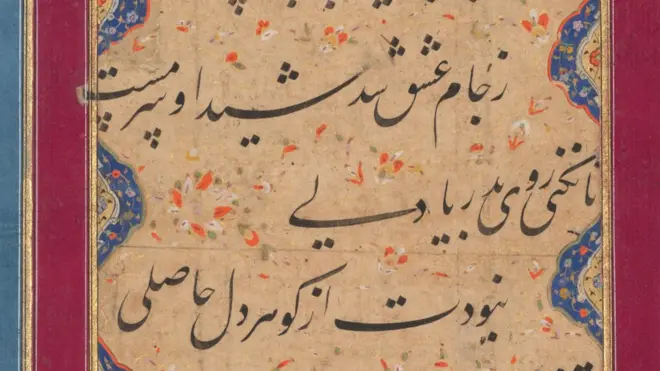 ز جام عشق شد شیدا و سرمست
تا نکنی روی بدریا دلی
نبودت از کوهر دل حاصلی